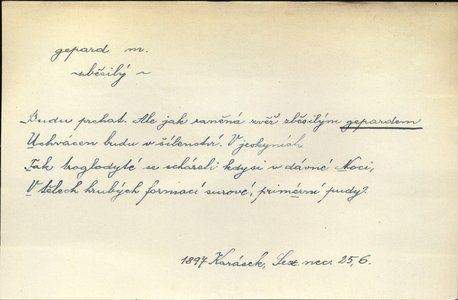 gepard m.
~zběsilý ~
Budu prchat. Ale jak raněná zvěř zběsilým gepardem
Uchvácen budu v šílenství. V jeskyních
Jak troglodyté se scházeli kdysi v dávné Noci,
V tělech hrubých formací surové, primérní pudy?
1897 Karásek, Sex. nec. 25, 6.